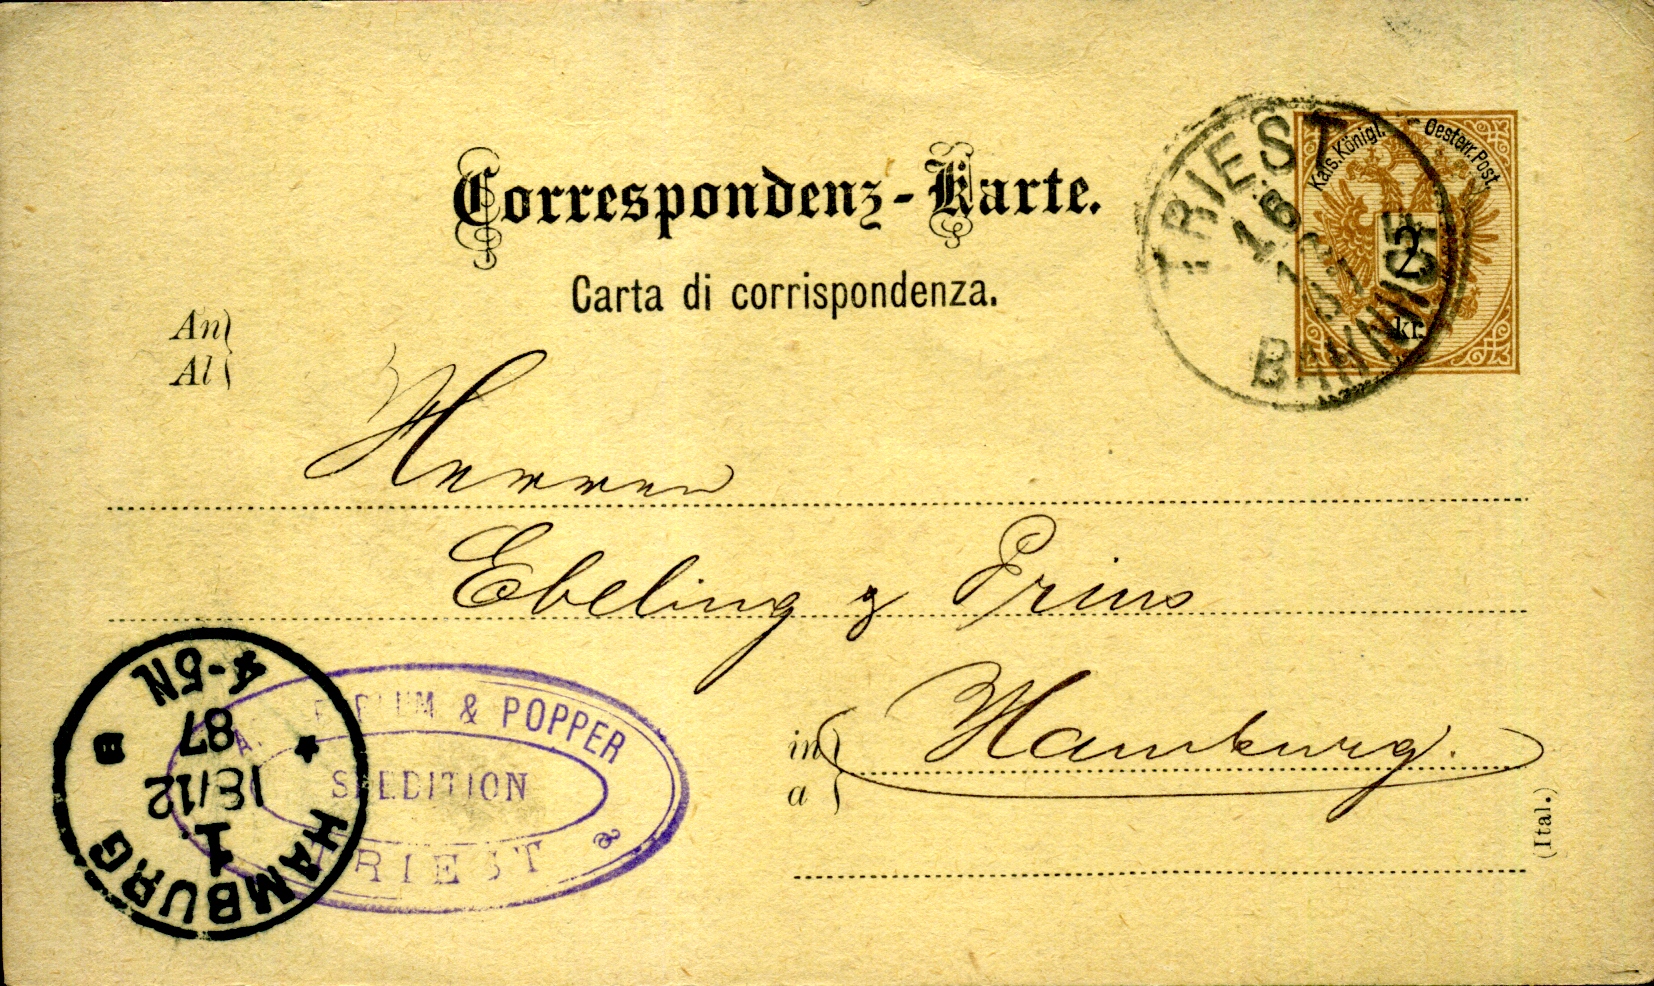 Correspondenz-Karte.
Carta di corrispondenza.
Kais. Königl. Oesterr. Post.
2
kr.
TRIEST
16
12
87
BAHNHOF
An
Al
Herren
Ebeling & Prins
in
a
Hamburg.
(Ital.)
& POPPER
SPEDITION
TRIEST
HAMBURG
1.
18/12
87
4-5N